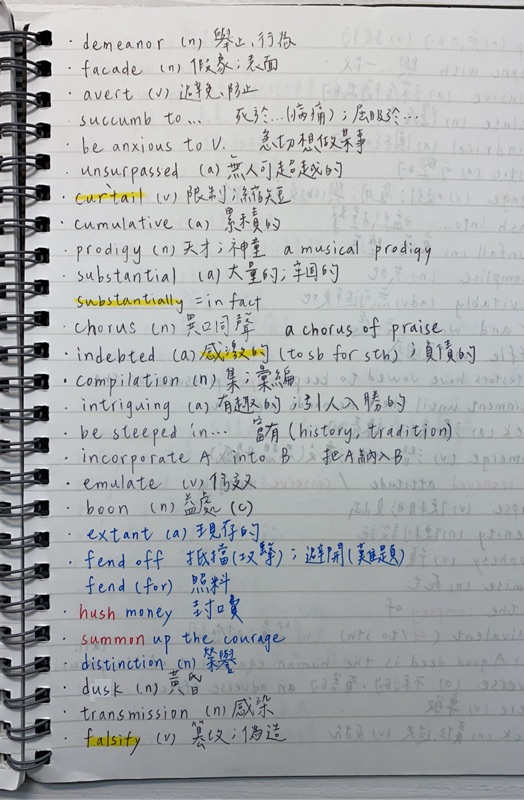 · demeanor (n) 舉止、行為
· facade (n) 假象;表面
· avert (v) 避免、防止
· succumb to... 死於...(病痛);屈服於...
· be anxious to V. 急切想做某事
· unsurpassed (a) 無人可超越的
· curtail (v) 限制;縮短
· cumulative (a) 累積的
· prodigy (n) 天才;神童 a musical prodigy
· substantial (a) 大量的;牢固的
substantially = in fact
· chorus (n) 異口同聲 a chorus of praise
· indebted (a) 感激的 (to sb for sth) ; 負債的
· compilation (n) 集;彙編
· intriguing (a) 有趣的;引人入勝的
· be steeped in... 富有 (history, tradition)
· incorporate A into B 把A納入B
· emulate (v) 仿效
· boon (n) 益處 (c)
· extant (a) 現存的
· fend off 抵擋(攻擊);避開(難題)
fend (for) 照料
· hush money 封口費
· summon up the courage
· distinction (n) 榮譽
· dusk (n) 黃昏
· transmission (n) 感染
· falsify (v) 篡改;偽造